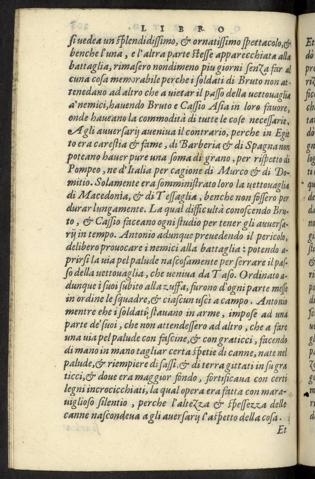 LIBRO
si uedea un splendidissimo, & ornatissimo spettacolo, &
benche l'una, e l'altra parte stesse apparecchiata alla
battaglia, rimasero nondimeno piu giorni senza far al
cuna cosa memorabile perche i soldati di Bruto non at-
tenedano ad altro che a uietar il passo della uettouaglia
a' nemici, hauendo Bruto e Cassio Asia in loro fauore,
onde haueano la commodità di tutte le cose necessarie.
A gli auuersarij aueniua il contrario, perche in Egit
to era carestia & fame, di Barberia & di Spagna non
poteano hauer pure una soma di grano, per rispetto di
Pompeo, ne d'Italia per cagione di Murco & di Do-
mitio. Solamente era somministrato loro la uettouaglia
di Macedonia, & di Tessaglia, benche non fossero per
durar lungamente. La qual difficultà conoscendo Bru-
to, & Cassio faceano ogni studio per tener gli auuersa-
rij in tempo. Antonio adunque preuedendo il pericolo,
delibero prouocare i nemici alla battaglia: potendo a-
prirsi la uia pel palude nascosamente per serrare il pas-
so della uettouaglia, che ueniua da Taso. Ordinato a-
dunque i suoi subito alla zuffa, furono d'ogni parte mese
in ordine le squadre, & ciascun uscì a campo. Antonio
mentre che i soldati stauano in arme, impose ad una
parte de' suoi, che non attendessero ad altro, che a fare
una uia pel palude con fascine, & con graticci, facendo
di mano in mano tagliar certa spetie di canne, nate nel
palude, & riempiere di sassi, & di terra gittati in su gra
ticci, & doue era maggior fondo, fortificaua con certi
legni incrocicchiati, la qual opera era fatta con mara-
uiglioso silentio, perche l'altezza & spessezza delle
canne nascondeua a gli auersarij l'aspetto della cosa.
Et